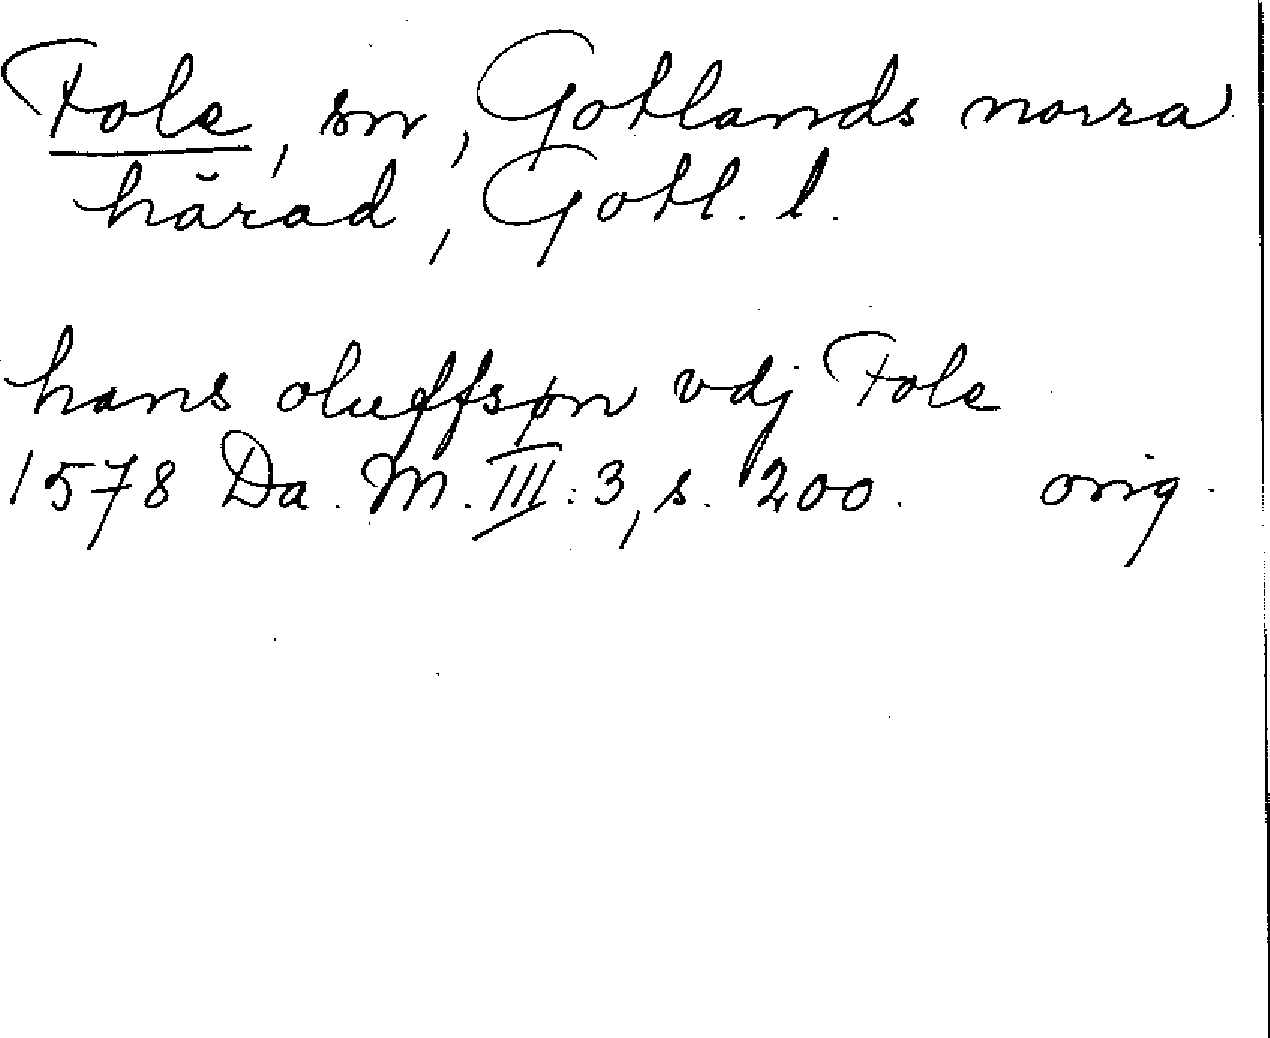 Fole, sn, Gotlands norra
härad, Gotl. l.
hans oluffsøn vdj Fole
1578 Da. M. III:3, s. 200. orig.